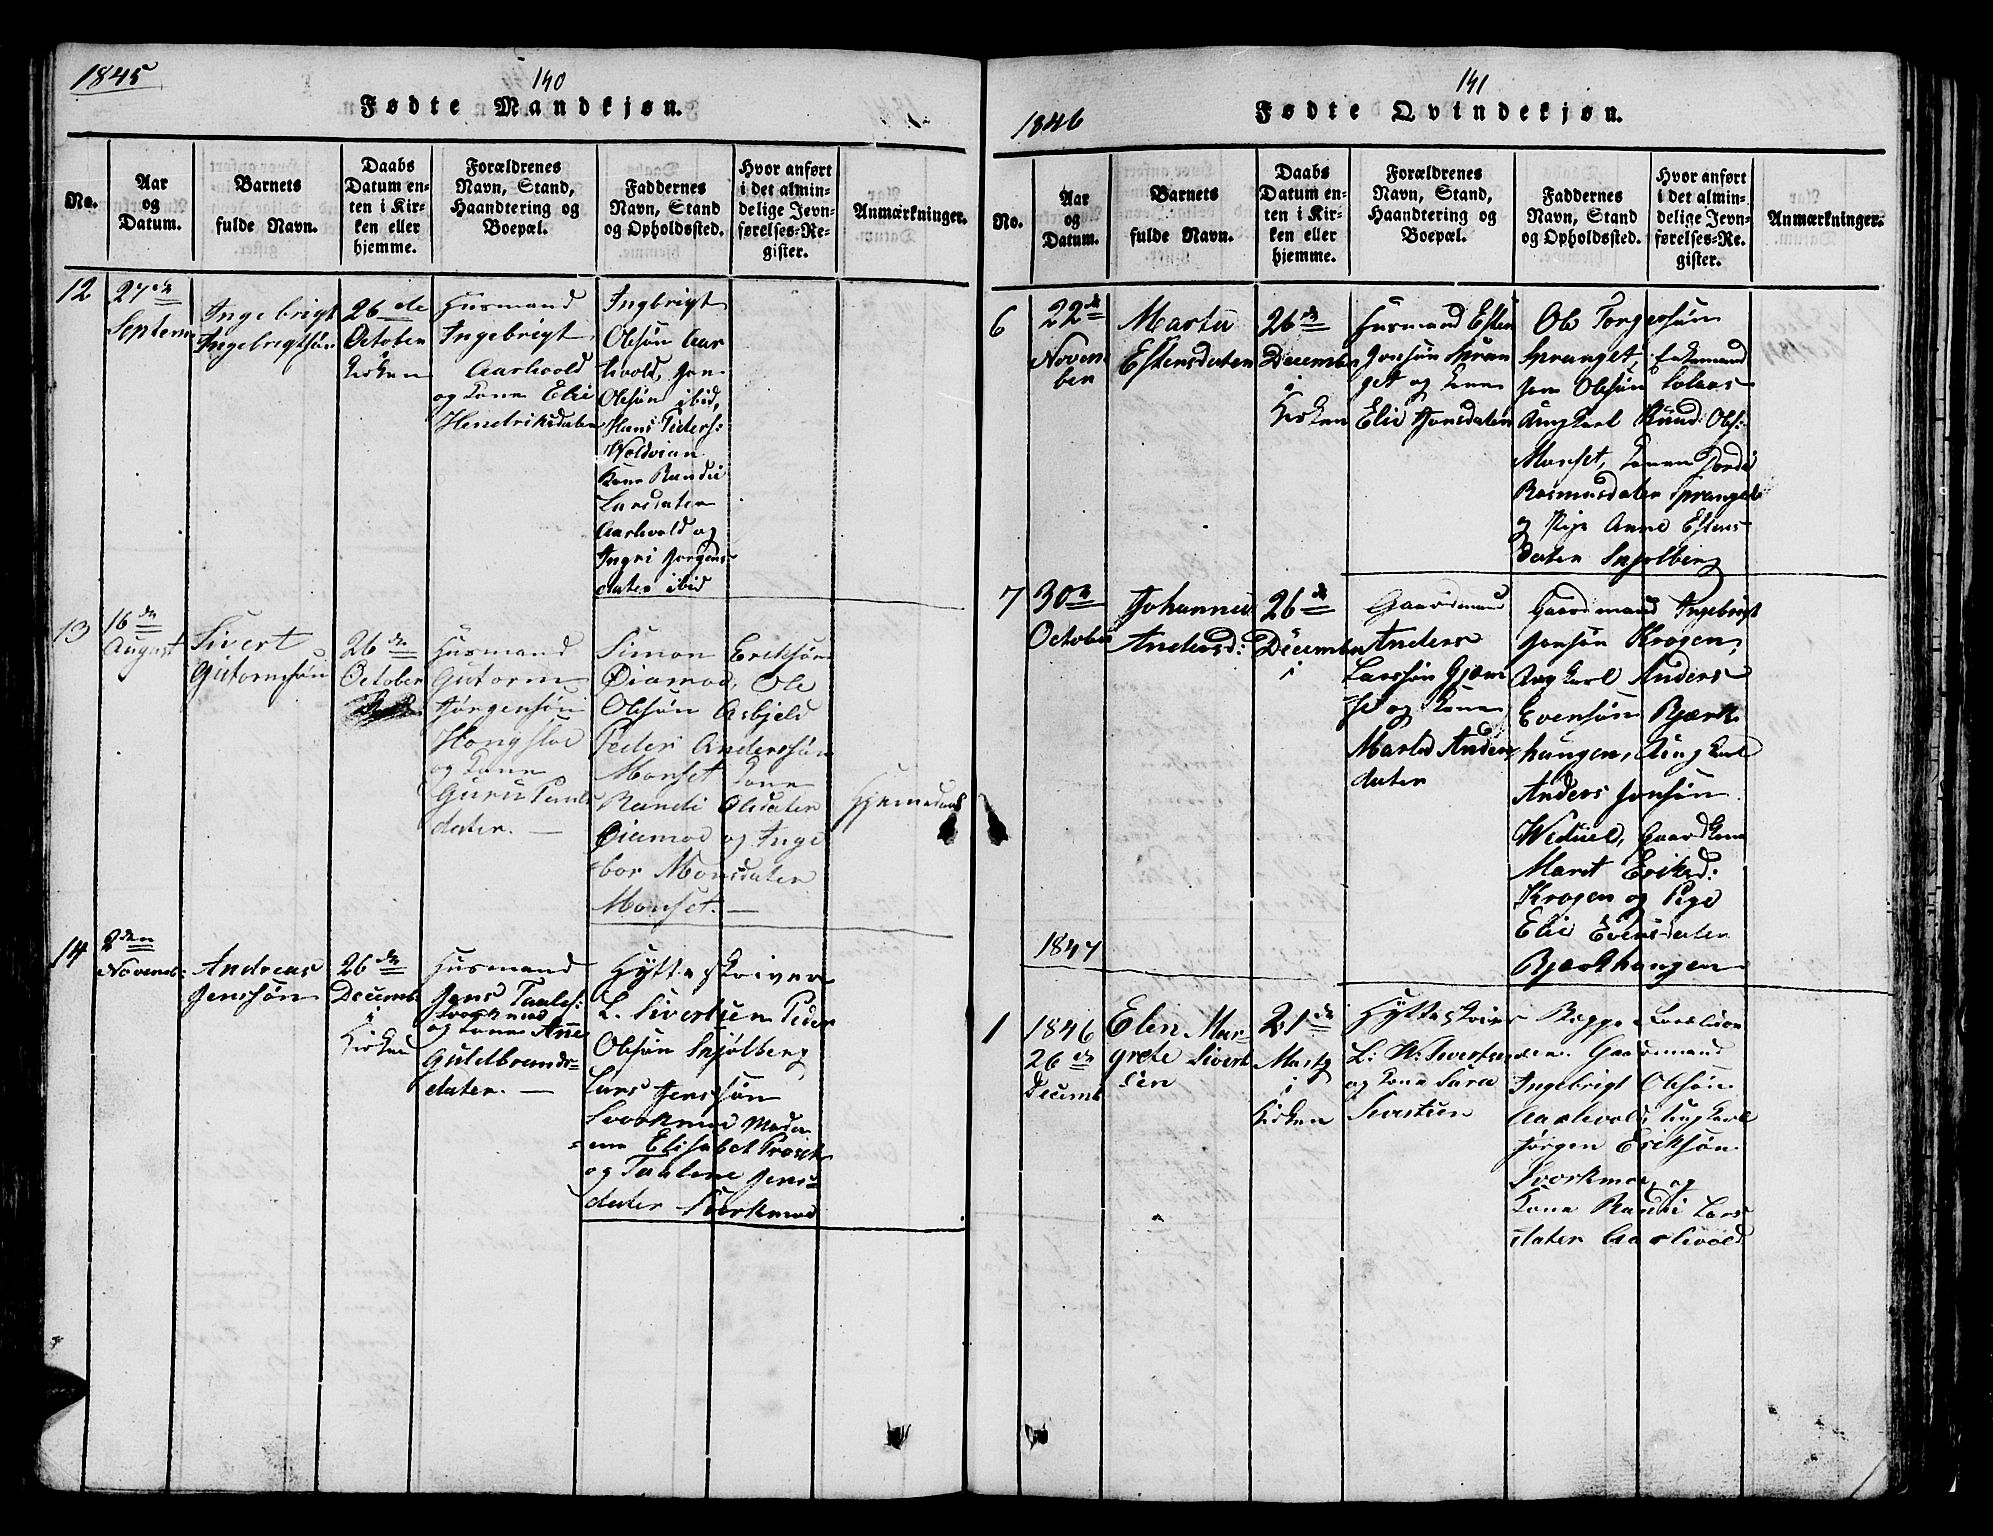 1845
140
Fødte Mandkjøn.
No.
Aar
og
Datum.
Barnets
fulde Navn.
Daabs
Datum en-
ten i Kir-
ken eller
hjemme.
Forældrenes
Navn, Stand,
Haandtering og
Boepæl.
Faddernes
Navn, Stand
og Opholdssted.
Hvor anført
i det almin-
delige Jevn-
førelses-Re-
gister.
Anmærkninger.
12
27de
Septem
Ingebrigt
Ingebrigtsøn
26de
October
i
Kirken
Husmand
Ingebrigt
Aarlivold
og Kone Elie
Hendriksdater
Ingbrigt
Olsøn Aar
livold, Jon
Olsøn ibid,
Hans Peders:
Kone Randie
Larsdater
Aarlivold og
Ingri Jørgens
dater ibid
13
16de
August
Sivert
Gutormsøn
26de
October
Husmand
Gutorm
Jørgensøn
Hongsloe
og Kone
Guru Pauls
dater.
Simon Eriksøn
Øiamoe, Ole
Olsøn Asbjeld
Peder Andersøn
Monset Kone
Randi Olsdater
Øiamoe og Inge
bor Monsdater
Monset.
Hjemedøbt
14
2den
Novemb:
Andreas
Jenssøn
26de
Decemb
i
Kirken
Husmand
Jens Paules:
Svorkmoe
og Kone Anne
Guldbrands-
dater.
Hytteskriver
L. Sivertsen Peder
Olsøn Snjølberg
Lars Jenssøn
Svorkmoe Mada
me Elisabet Prøsch
og Paulene Jens-
dater Svorkmoe
141
1846
Fødte Qvindekjøn.
No.
Aar
og
Datum.
Barnets
fulde Navn.
Daabs
Datum en-
ten i Kir-
ken eller
hjemme.
Forældrenes
Navn, Stand,
Haandtering og
Boepæl.
Faddernes
Navn, Stand
og Opholdssted.
Hvor anført
i det almin-
delige Jevn-
førelses-Re-
gister.
Anmærkninger.
6
22de
Novem
ber
Marta
Estensdater
26de
December
i
Kirken
Husmand Esten
Jonsøn Spran
get og Kone
Elie Jonsdater
Ole Torgersøn
Spranget, Enkemand
Jon Olsøn Solaas
Ungkarl Knud Ols:
Monset, Konen Dordi
Rasmusdater Spranget
og Pige Anne Estens
dater Snjolberg
7
30te
October
Johanna
Andersd:
26de
December
i
Gaardmand
Anders
Larssøn Gjøn
og Kone
Marta Anders
dater
Gaardmand Ingebrigt
Jonsøn Krogen,
Ungkarl Anders
Evensøn Bjærk
haugen, Ungkarl
Anders Jonsøn
Gaardkone
Marit Eriksd:
Krogen og Pige
Elie Evensdater
Bjærkhaugen
1847
1
1846
26de
Decemb
Elen Mar-
grete Sivert
sen
21de
Marts
i
Kirken
Hytteskriver
L: W: Sivertsen
og Kone Sara
Sivertsen
Gaardmand
Ingebrigt Olsøn
Aarlivold, Ungkarl
Jørgen Eriksøn
Svorkmoe og
Kone Randi Lars
dater Aarlivold